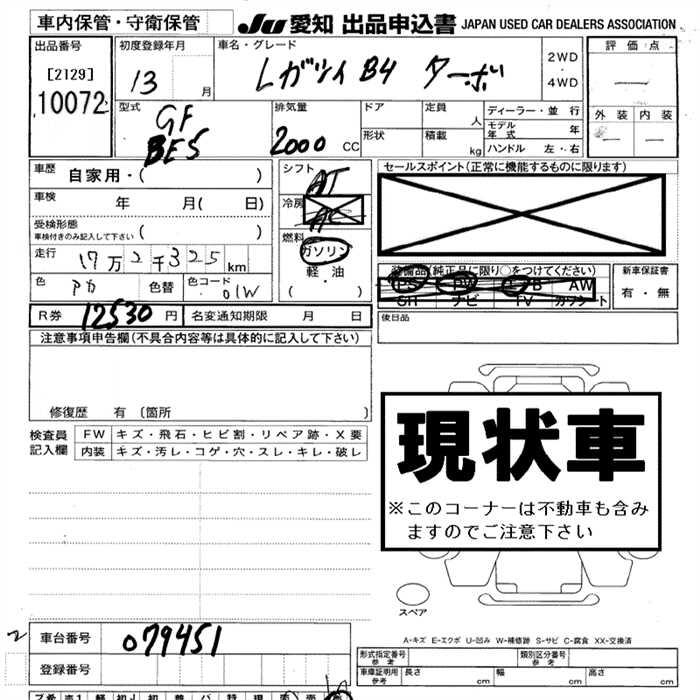 車内保管・守衛保管
JU 愛知 出品申込書 JAPAN USED CAR DEALERS ASSOCIATION
出品番号
[2129]
10072
初度登録年月
13 月
車名・グレード
レガシィ B4 ターボ
2WD
4WD
評価点
外装 内装
型式
GF
BE5
排気量
2000 CC
ドア
形状
定員 人
積載 kg
ディーラー・並行
モデル年式 年
ハンドル 左・右
車歴 自家用・( )
車検 年 月( 日)
受検形態
車検付きのみ記入して下さい ( )
走行 17万2千325km
色 色替 色コード 01W
シフト AT
冷房 AC
燃料
ガソリン
軽・油
( ・ )
セールスポイント(正常に機能するものに限ります)
装備品(純正品に限り○をつけてください)
PS PW エアB AW
SH ナビ TV カワシート
新車保証書
有・無
R券 12530 円 名変通知期限 月 日
後日品
注意事項申告欄(不具合内容等は具体的に記入して下さい)
修復歴 有 〔箇所 〕
検査員記入欄
FW キズ・飛石・ヒビ割・リペア跡・X要
内装 キズ・汚レ・コゲ・穴・スレ・キレ・破レ
現状車
※このコーナーは不動車も含み
ますのでご注意下さい
スペア
A-キズ E-エクボ U-凹み W-補修跡 S-サビ C-腐食 XX-交換済
2
車台番号 079451
登録番号
形式指定番号 参考
類別区分番号 参考
車庫証明用 参考 長さ cm 幅 cm 高さ cm